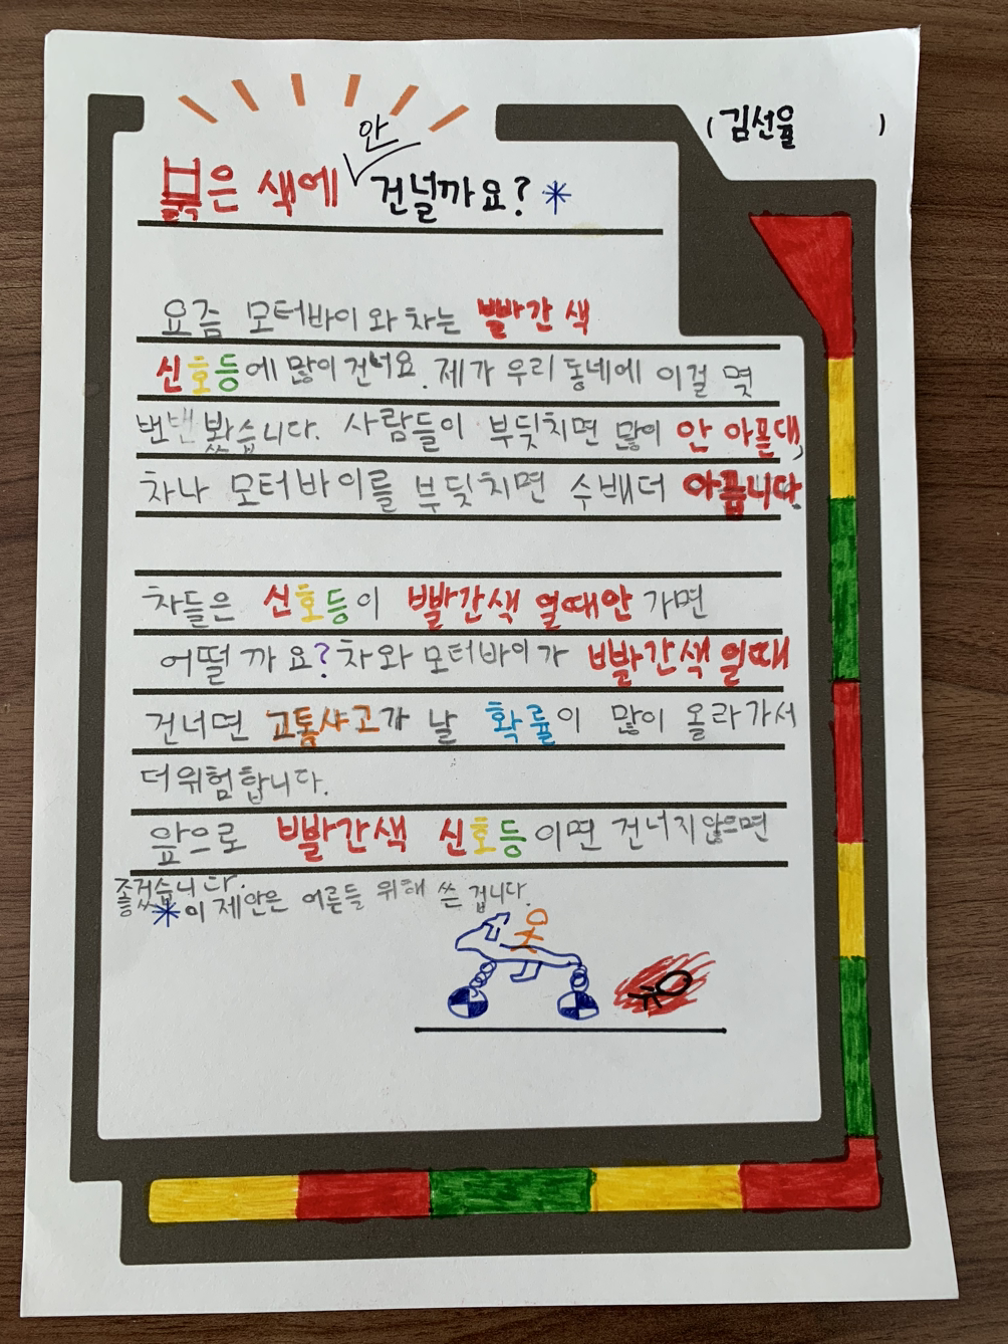 (김선율)
붉은 색에 안 건널까요? *
요즘 모터바이와 차는 빨간 색
신호등에 많이 건너요. 제가 우리 동네에 이걸 몇
번 봤습니다. 사람들이 부딪치면 많이 안 아픈대,
차나 모터바이를 부딪치면 수배더 아픕니다.
차들은 신호등이 빨간색 일때안 가면
어떨까요? 차와 모터바이가 빨간색일때
건너면 교통사고가 날 확률이 많이 올라가서
더위험합니다.
앞으로 빨간색 신호등이면 건너지않으면
좋겠습니다.
* 이 제안은 어른들 위해 쓴 겁니다.